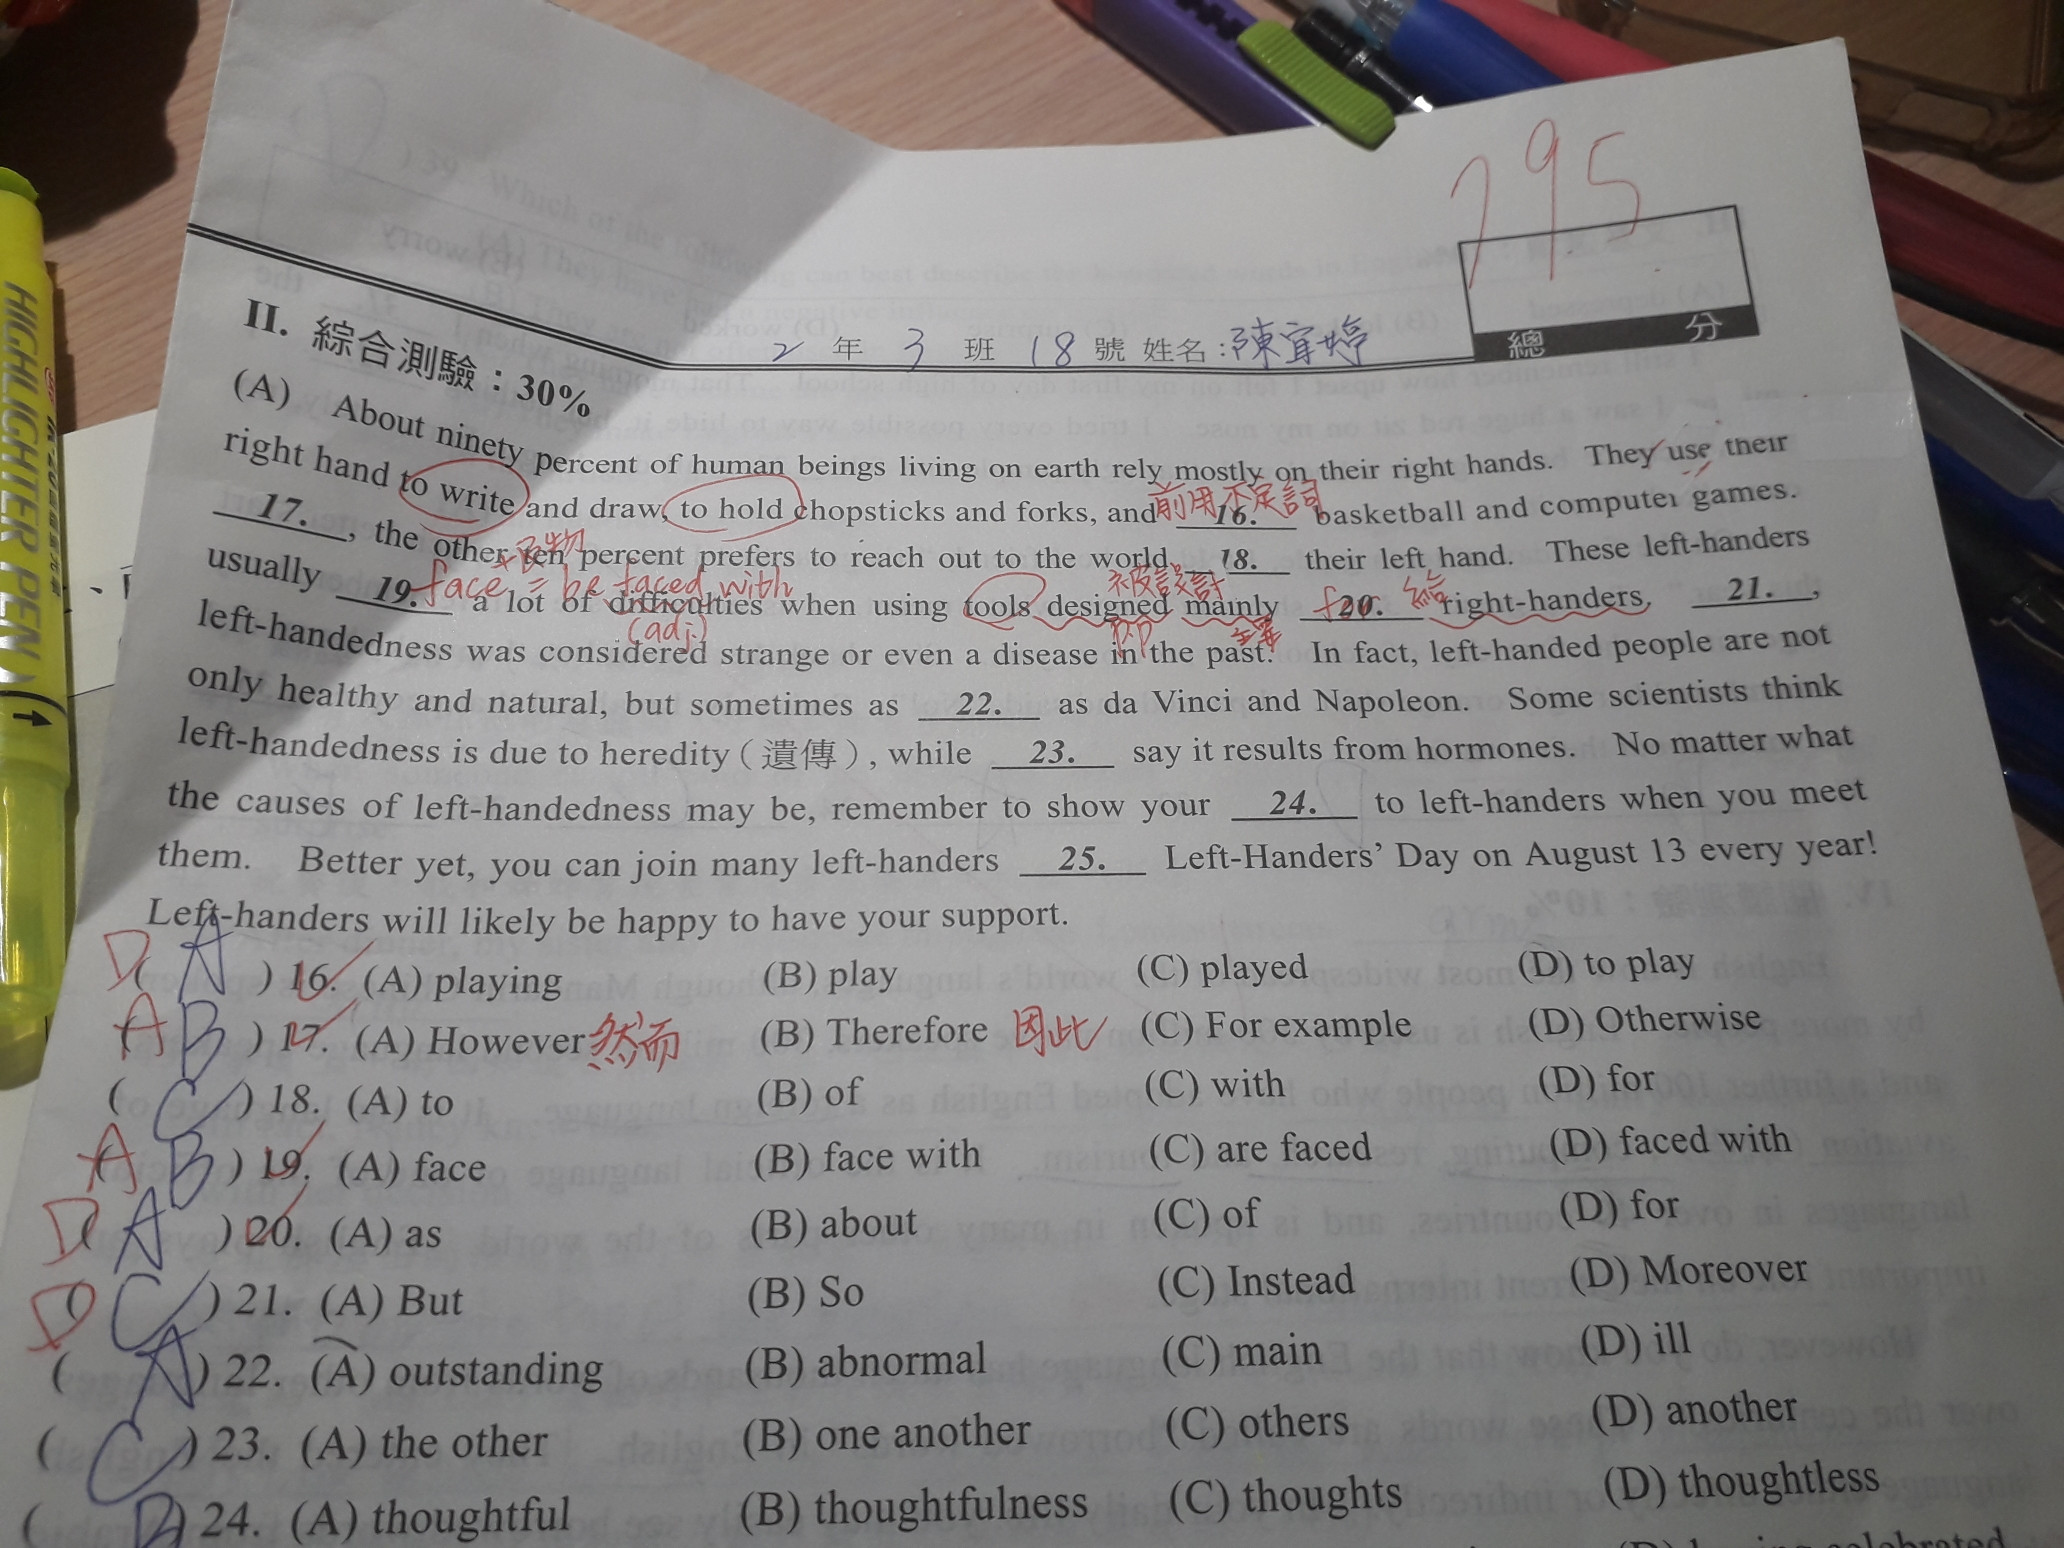 795
總分
2 年 3 班 18 號 姓名：陳宜婷
II. 綜合測驗：30%
(A) About ninety percent of human beings living on earth rely mostly on their right hands. They use their
right hand to write and draw, to hold chopsticks and forks, and 16. basketball and computer games.
前用不定詞
17. , the other ten percent prefers to reach out to the world 18. their left hand. These left-handers
face = be faced with
被設計
usually 19. a lot of difficulties when using tools designed mainly 20. right-handers. 21. ,
for 給
(adj.) P.P 主要
left-handedness was considered strange or even a disease in the past. In fact, left-handed people are not
only healthy and natural, but sometimes as 22. as da Vinci and Napoleon. Some scientists think
left-handedness is due to heredity（遺傳）, while 23. say it results from hormones. No matter what
the causes of left-handedness may be, remember to show your 24. to left-handers when you meet
them. Better yet, you can join many left-handers 25. Left-Handers' Day on August 13 every year!
Left-handers will likely be happy to have your support.
D ( A ) 16. (A) playing (B) play (C) played (D) to play
A ( B ) 17. (A) However 然而 (B) Therefore 因此 (C) For example (D) Otherwise
( C ) 18. (A) to (B) of (C) with (D) for
A ( B ) 19. (A) face (B) face with (C) are faced (D) faced with
D ( A ) 20. (A) as (B) about (C) of (D) for
D ( C ) 21. (A) But (B) So (C) Instead (D) Moreover
( A ) 22. (A) outstanding (B) abnormal (C) main (D) ill
( C ) 23. (A) the other (B) one another (C) others (D) another
( D ) 24. (A) thoughtful (B) thoughtfulness (C) thoughts (D) thoughtless
HIGHLIGHTER PEN